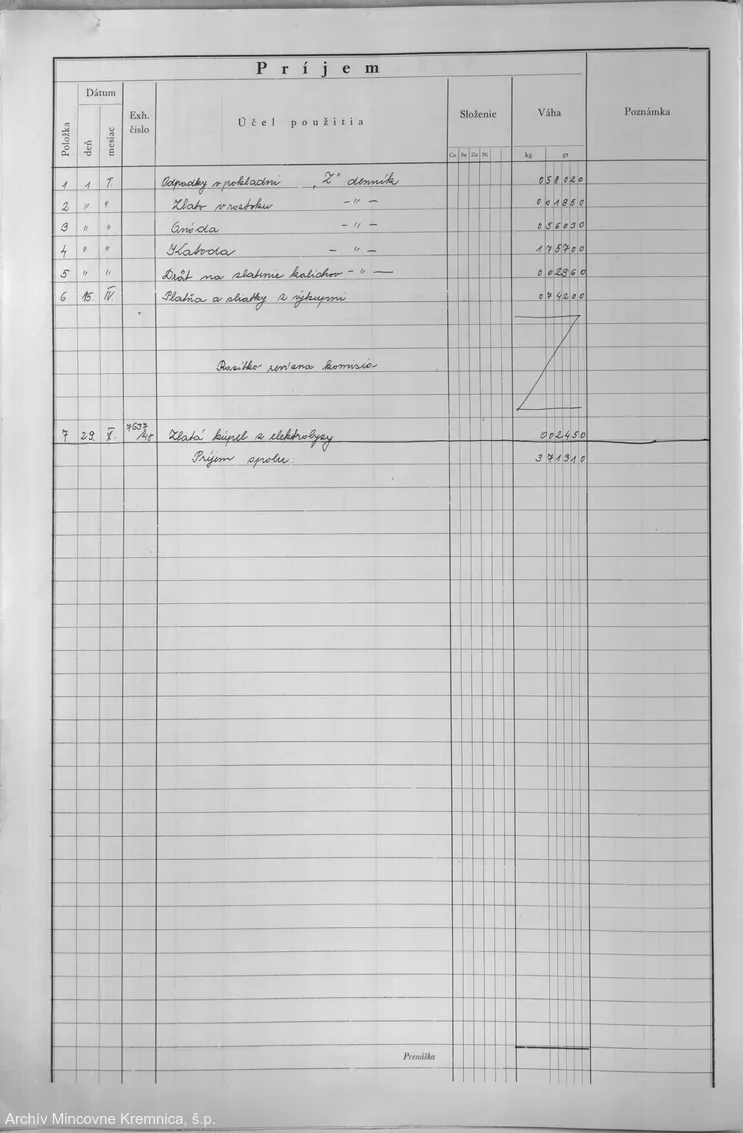 Príjem
Položka
Dátum
deň
mesiac
Exh. číslo
Účel použitia
Složenie
Cu Sn Zn Ni
Váha
kg gr
Poznámka
1 1 I Odpadky v pokladni „Z" denník 058020
2 " " Zlato v roztoku - " - 001850
3 " " Anóda - " - 056030
4 " " Katoda - " - 175700
5 " " Drôt na zlatenie kalichov - " - 002960
6 15. IV. Platňa a zliatky z výkupni 074200
Razítko revízna komisia
7 29. X. 7697 Zlatá kúpeľ z elektrolyzy 002450
Príjem spolu: 371310
Prenáška
Archív Mincovne Kremnica, š.p.